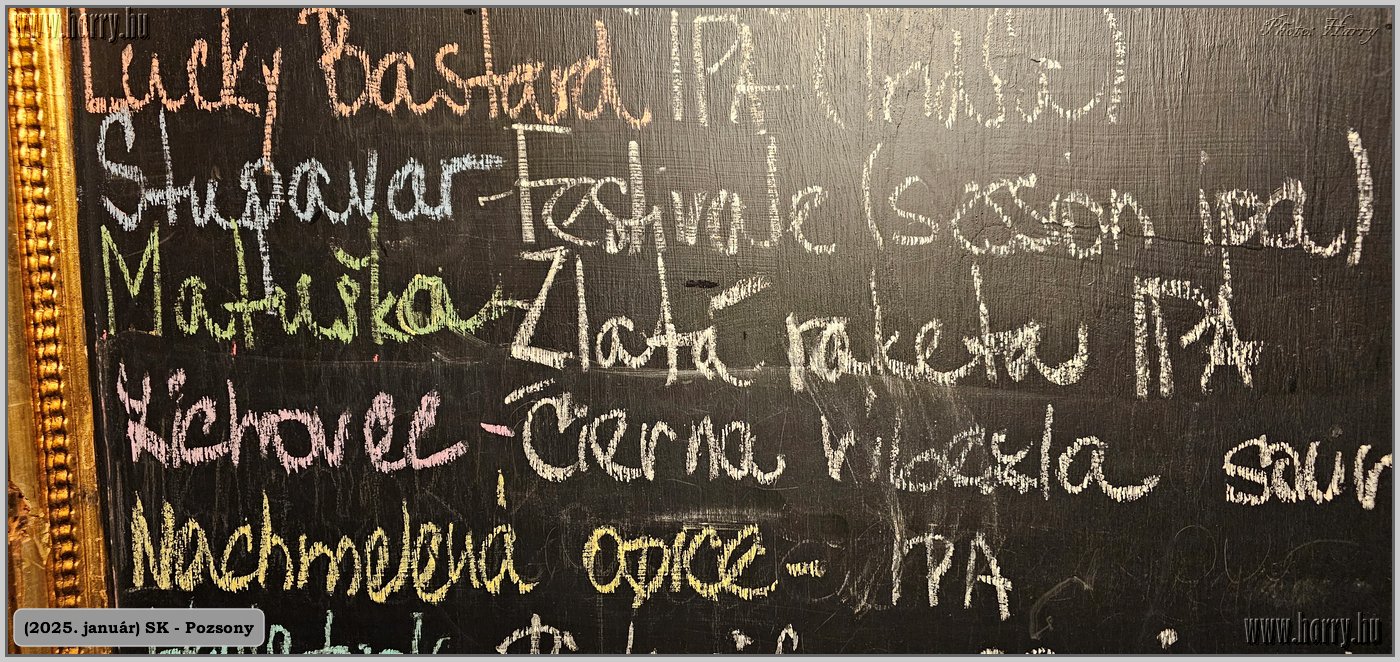 www.horry.hu
Photo: Harry
Lucky Bastard IPA (Truhlík)
Stupavar - Festivale (session ipa)
Matuška - Zlatá raketa IPA
Kichovec - Čierna ríbezla sour
Nachmelená opice - IPA
(2025. január) SK - Pozsony
www.horry.hu